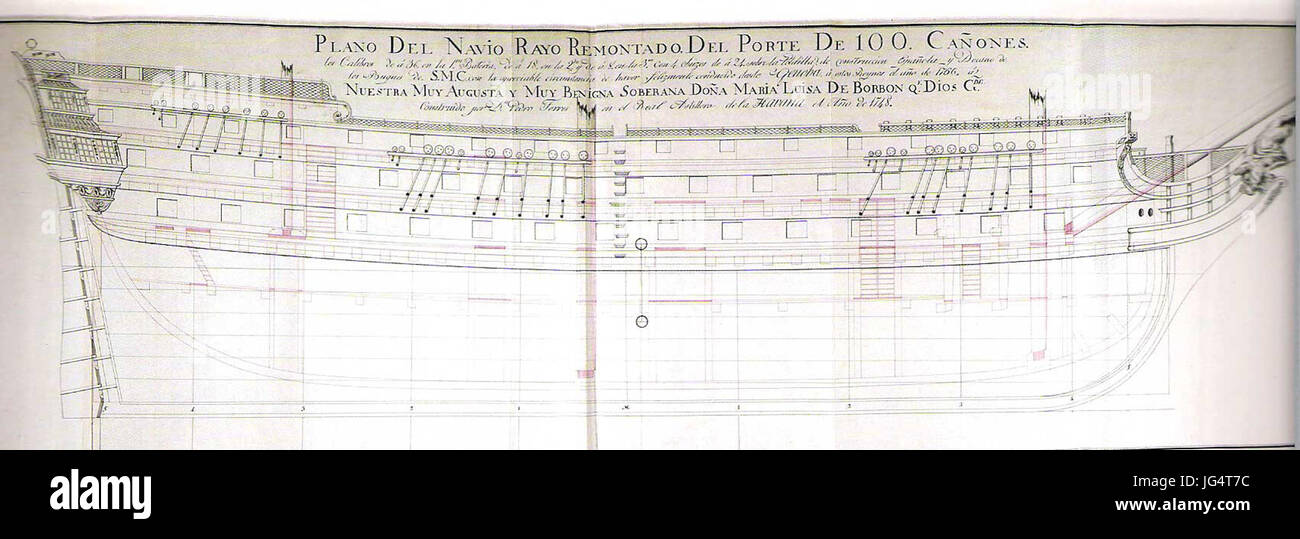 PLANO DEL NAVIO RAYO REMONTADO. DEL PORTE DE 100. CAÑONES.
los Calibres de á 36. en la 1ra. Batería, de á 18. en la 2a. y de á 8. en la 3a. Con 4 obuzes de á 24. sobre la Toldilla, de construccion Española, y Decano de
los Buques de S.M.C. con la apreciable circunstancia de haver felizmente conducido desde Genova, á estos Reynos el año de 1766. á
NUESTRA MUY AUGUSTA Y MUY BENIGNA SOBERANA DOÑA MARIA LUISA DE BORBON Q. DIOS
Construido por Dn. Pedro Torres en el Real Astillero de la HAVANA el Año de 1748.
5 4 3 2 1 M 1 2 3 4 5
alamy
alamy
alamy
Image ID: JG4T7C
www.alamy.com